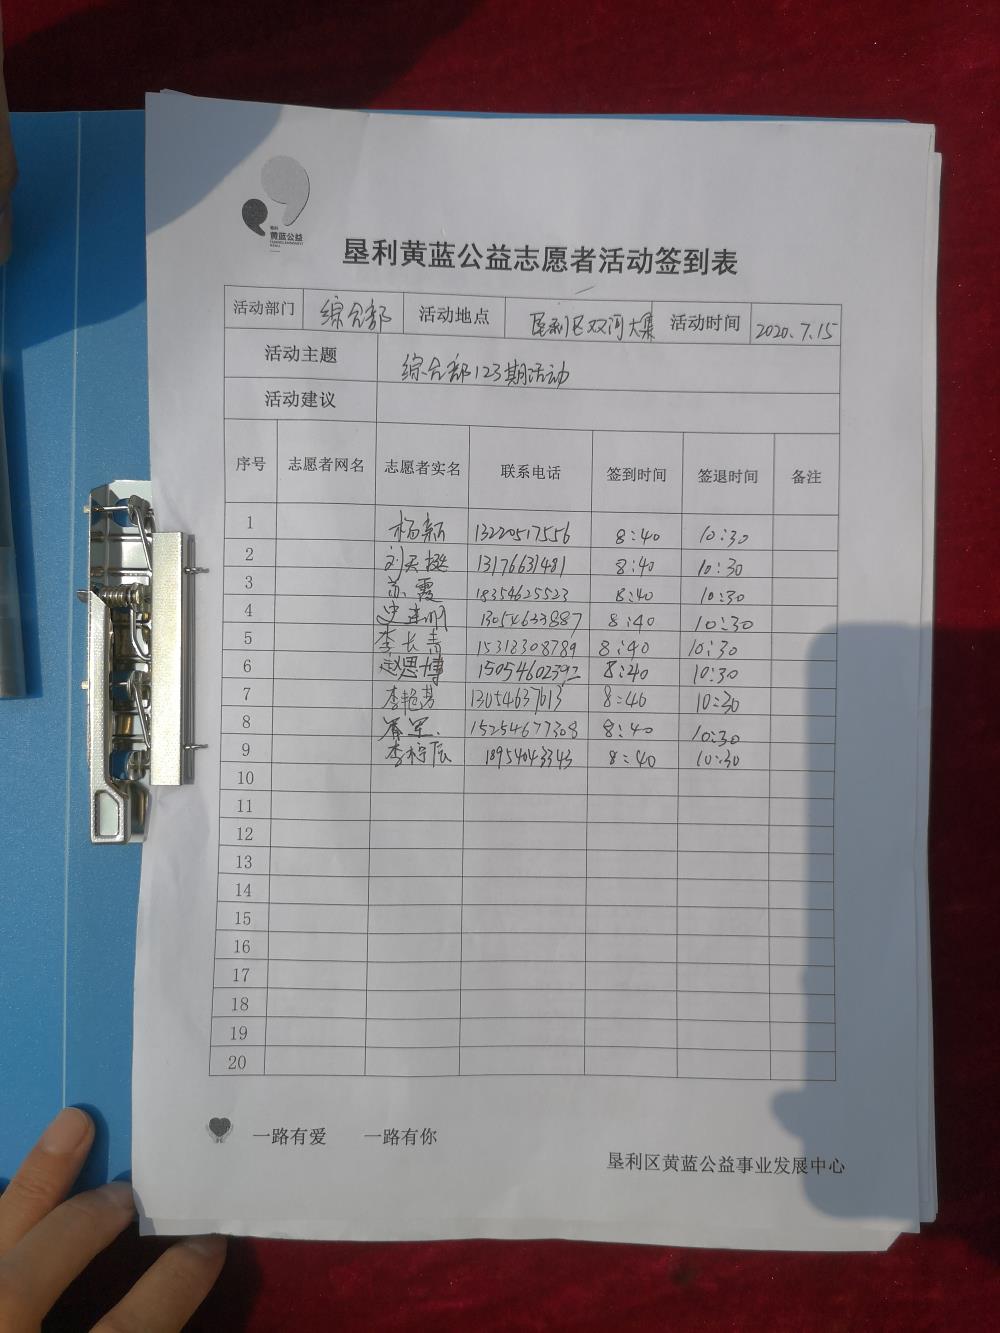 黄蓝公益
垦利黄蓝公益志愿者活动签到表
活动部门 综合部 活动地点 垦利区双河大集 活动时间 2020.7.15
活动主题 综合部123期活动
活动建议
序号 志愿者网名 志愿者实名 联系电话 签到时间 签退时间 备注
1 杨新 13220517556 8:40 10:30
2 刘天挺 13176631481 8:40 10:30
3 苏霞 18354625523 8:40 10:30
4 史建明 13054633887 8:40 10:30
5 李长青 15318308789 8:40 10:30
6 赵思博 15054602392 8:40 10:30
7 李艳芳 13054637613 8:40 10:30
8 军 15254677308 8:40 10:30
9 李梓辰 18954043343 8:40 10:30
10
11
12
13
14
15
16
17
18
19
20
一路有爱 一路有你
垦利区黄蓝公益事业发展中心